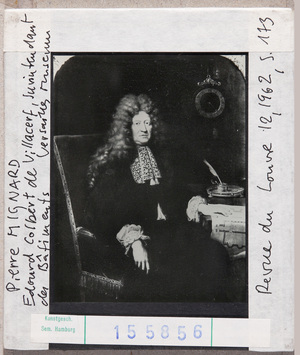 Pierre MIGNARD
Edouard Colbert de Villacerf, Surintendant
des Bâtiments Versailles, Museum
Revue du Louvre 12, 1962, S. 173
Kunstgesch.
Sem. Hamburg
155856